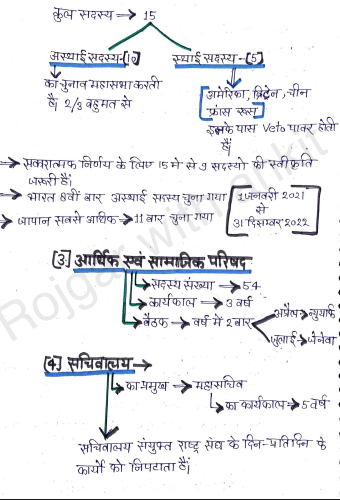 कुल सदस्य → 15
अस्थाई सदस्य-[10] स्थाई सदस्य-[5]
का चुनाव महासभा करती
है। 2/3 बहुमत से
अमेरिका, ब्रिटेन, चीन
फ्रांस रूस
इनके पास Veto पावर होती
है।
→ सकारात्मक निर्णय के लिए 15 मे से 9 सदस्यो की स्वीकृति
जरूरी है।
→ भारत 8वीं बार अस्थाई सदस्य चुना गया [1 जनवरी 2021
से
31 दिसम्बर 2022]
→ जापान सबसे अधिक → 11 बार चुना गया
[3] आर्थिक एवं सामाजिक परिषद
→ सदस्य संख्या → 54
→ कार्यकाल → 3 वर्ष
→ बैठक → वर्ष में 2 बार
अप्रैल → न्युयॉर्क
जुलाई → जेनेवा
[4] सचिवालय →
→ का प्रमुख → महासचिव
→ का कार्यकाल → 5 वर्ष
सचिवालय संयुक्त राष्ट्र संघ के दिन-प्रतिदिन के
कार्यो को निपटाता है।
Rojgar with Ankit